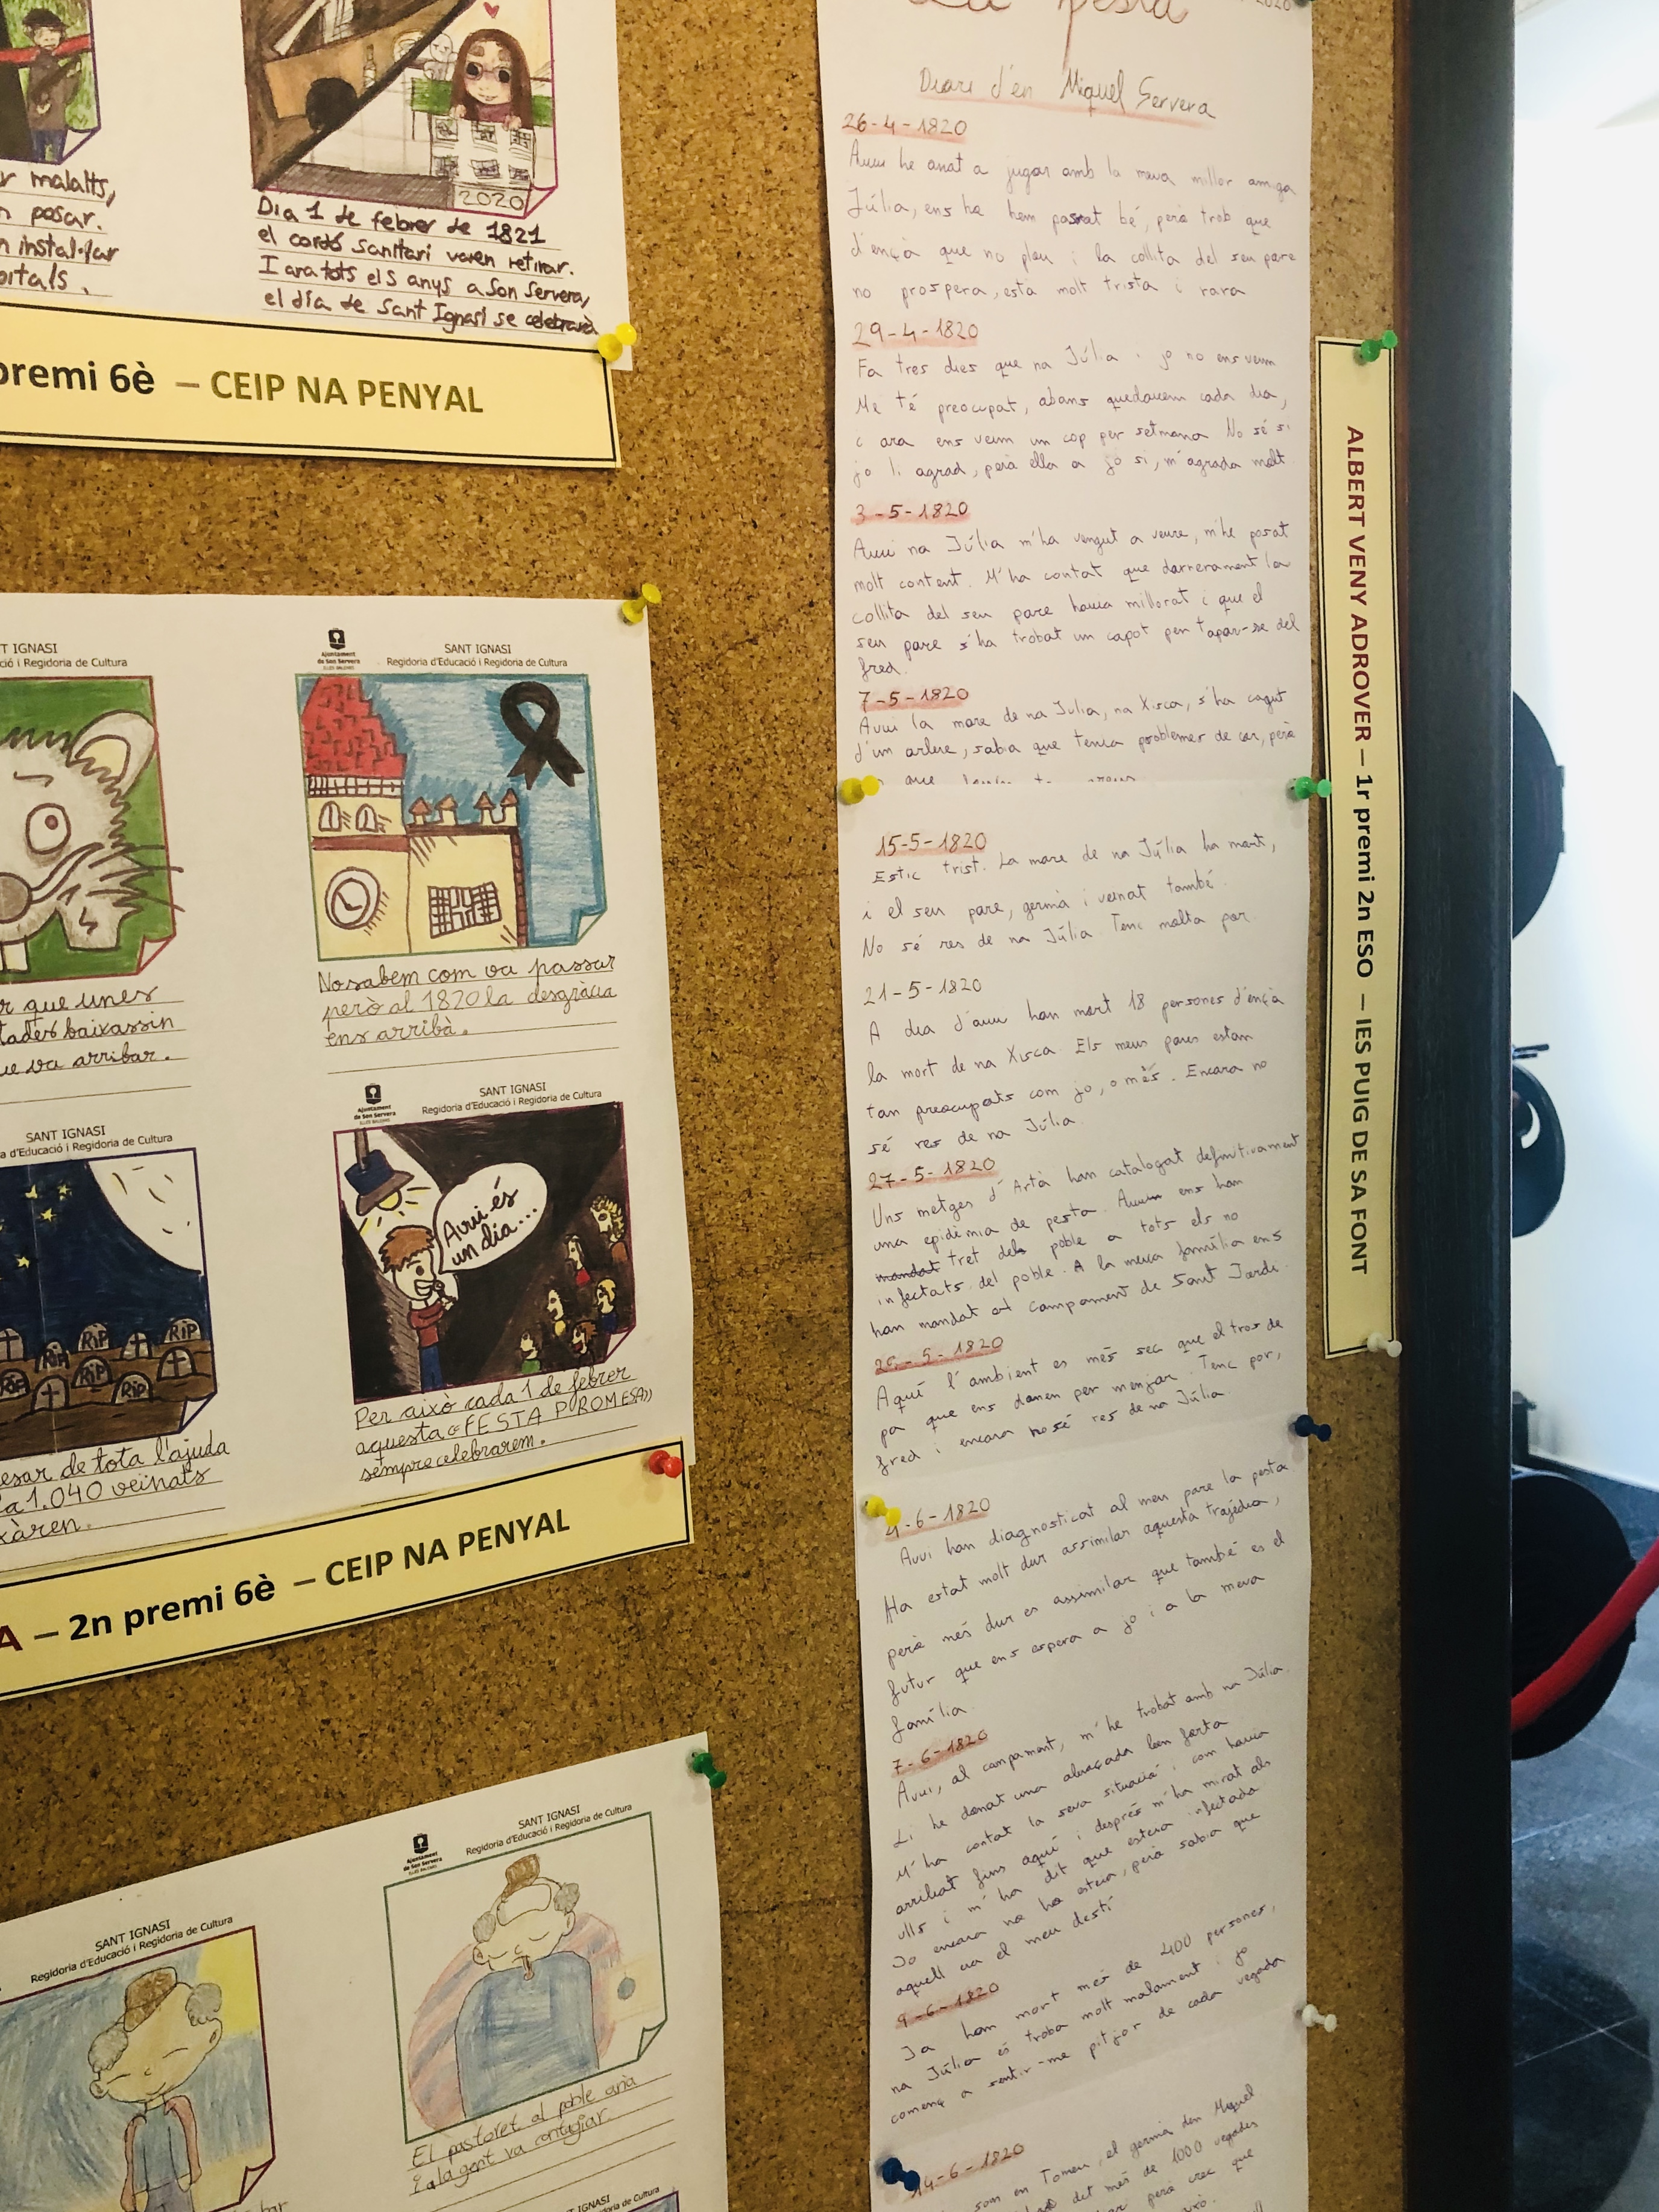 r malalts,
n posar.
n instal·lar
ortals.
2020
Dia 1 de febrer de 1821
el cordó sanitari varen retirar.
I ara tots els anys a Son Servera,
el día de Sant Ignasi se celebrarà
premi 6è – CEIP NA PENYAL
T IGNASI
ció i Regidoria de Cultura
r que unes
tades baixassin
ue va arribar.
Ajuntament
de Son Servera
ILLES BALEARS
SANT IGNASI
Regidoria d'Educació i Regidoria de Cultura
No sabem com va passar
però al 1820 la desgràcia
ens arribà.
SANT IGNASI
a d'Educació i Regidoria de Cultura
RIP
RIP
RIP
RIP
esar de tota l'ajuda
a 1.040 veïnats
xàren.
Ajuntament
de Son Servera
ILLES BALEARS
SANT IGNASI
Regidoria d'Educació i Regidoria de Cultura
Avui és
un dia...
Per això cada 1 de febrer
aquesta «FESTA PROMESA»
sempre celebrarem.
A – 2n premi 6è – CEIP NA PENYAL
SANT IGNASI
Regidoria d'Educació i Regidoria de Cultura
Ajuntament
de Son Servera
ILLES BALEARS
SANT IGNASI
Regidoria d'Educació i Regidoria de Cultura
El pastoret al poble anà
i a la gent va contagiar.
SANT IGNASI
La pesta
Diari d'en Miquel Servera
26-4-1820
Avui he anat a jugar amb la meva millor amiga
Júlia, ens ho hem passat bé, però trob que
d'ençà que no plou i la collita del seu pare
no prospera, està molt trista i rara
29-4-1820
Fa tres dies que na Júlia i jo no ens veum
Me té preocupat, abans quedavem cada dia,
i ara ens veum un cop per setmana No sé si
jo li agrad, però ella a jo si, m'agrada molt
3-5-1820
Avui na Júlia m'ha vengut a veure, m'he posat
molt content. M'ha contat que darrerament la
collita del seu pare havia millorat i que el
seu pare s'ha trobat un capot per tapar-se del
fred.
7-5-1820
Avui la mare de na Júlia, na Xisca, s'ha cagut
d'un arbre, sabia que tenia problemes de cor, però
15-5-1820
Estic trist. La mare de na Júlia ha mort,
i el seu pare, germà i veinat també.
No sé res de na Júlia. Tenc molta por.
21-5-1820
A dia d'avui han mort 18 persones d'ençà
la mort de na Xisca. Els meus pares estan
tan preocupats com jo, o més. Encara no
sé res de na Júlia
27-5-1820
Uns metges d'Artà han catalogat definitivament
una epidèmia de pesta. Avui ens han
mandat tret del poble a tots els no
infectats del poble. A la meva família ens
han mandat al campament de Sant Jordi.
-5-1820
Aquí l'ambient es més sec que el tros de
pa que ens donen per menjar. Tenc por,
fred i encara no sé res de na Júlia
-6-1820
Avui han diagnosticat al meu pare la pesta
Ha estat molt dur assimilar aquesta trajèdia,
però més dur es assimilar que també es el
futur que ens espera a jo i a la meva
família.
7-6-1820
Avui, al campament, m'he trobat amb na Júlia.
Li he donat una abraçada ben forta
M'ha contat la seva situació i com havia
arribat fins aquí i després m'ha mirat als
ulls i m'ha dit que estava infectada
Jo encara no ho estava, però sabia que
aquell era el meu destí
9-6-1820
Ja han mort més de 400 persones,
na Júlia es troba molt malament i jo
començ a sentir-me pitjor de cada vegada
14-6-1820
som en Tomeu, el germà d'en Miquel
dit més de 1000 vegades
però crec que
ALBERT VENY ADROVER – 1r premi 2n ESO – IES PUIG DE SA FONT